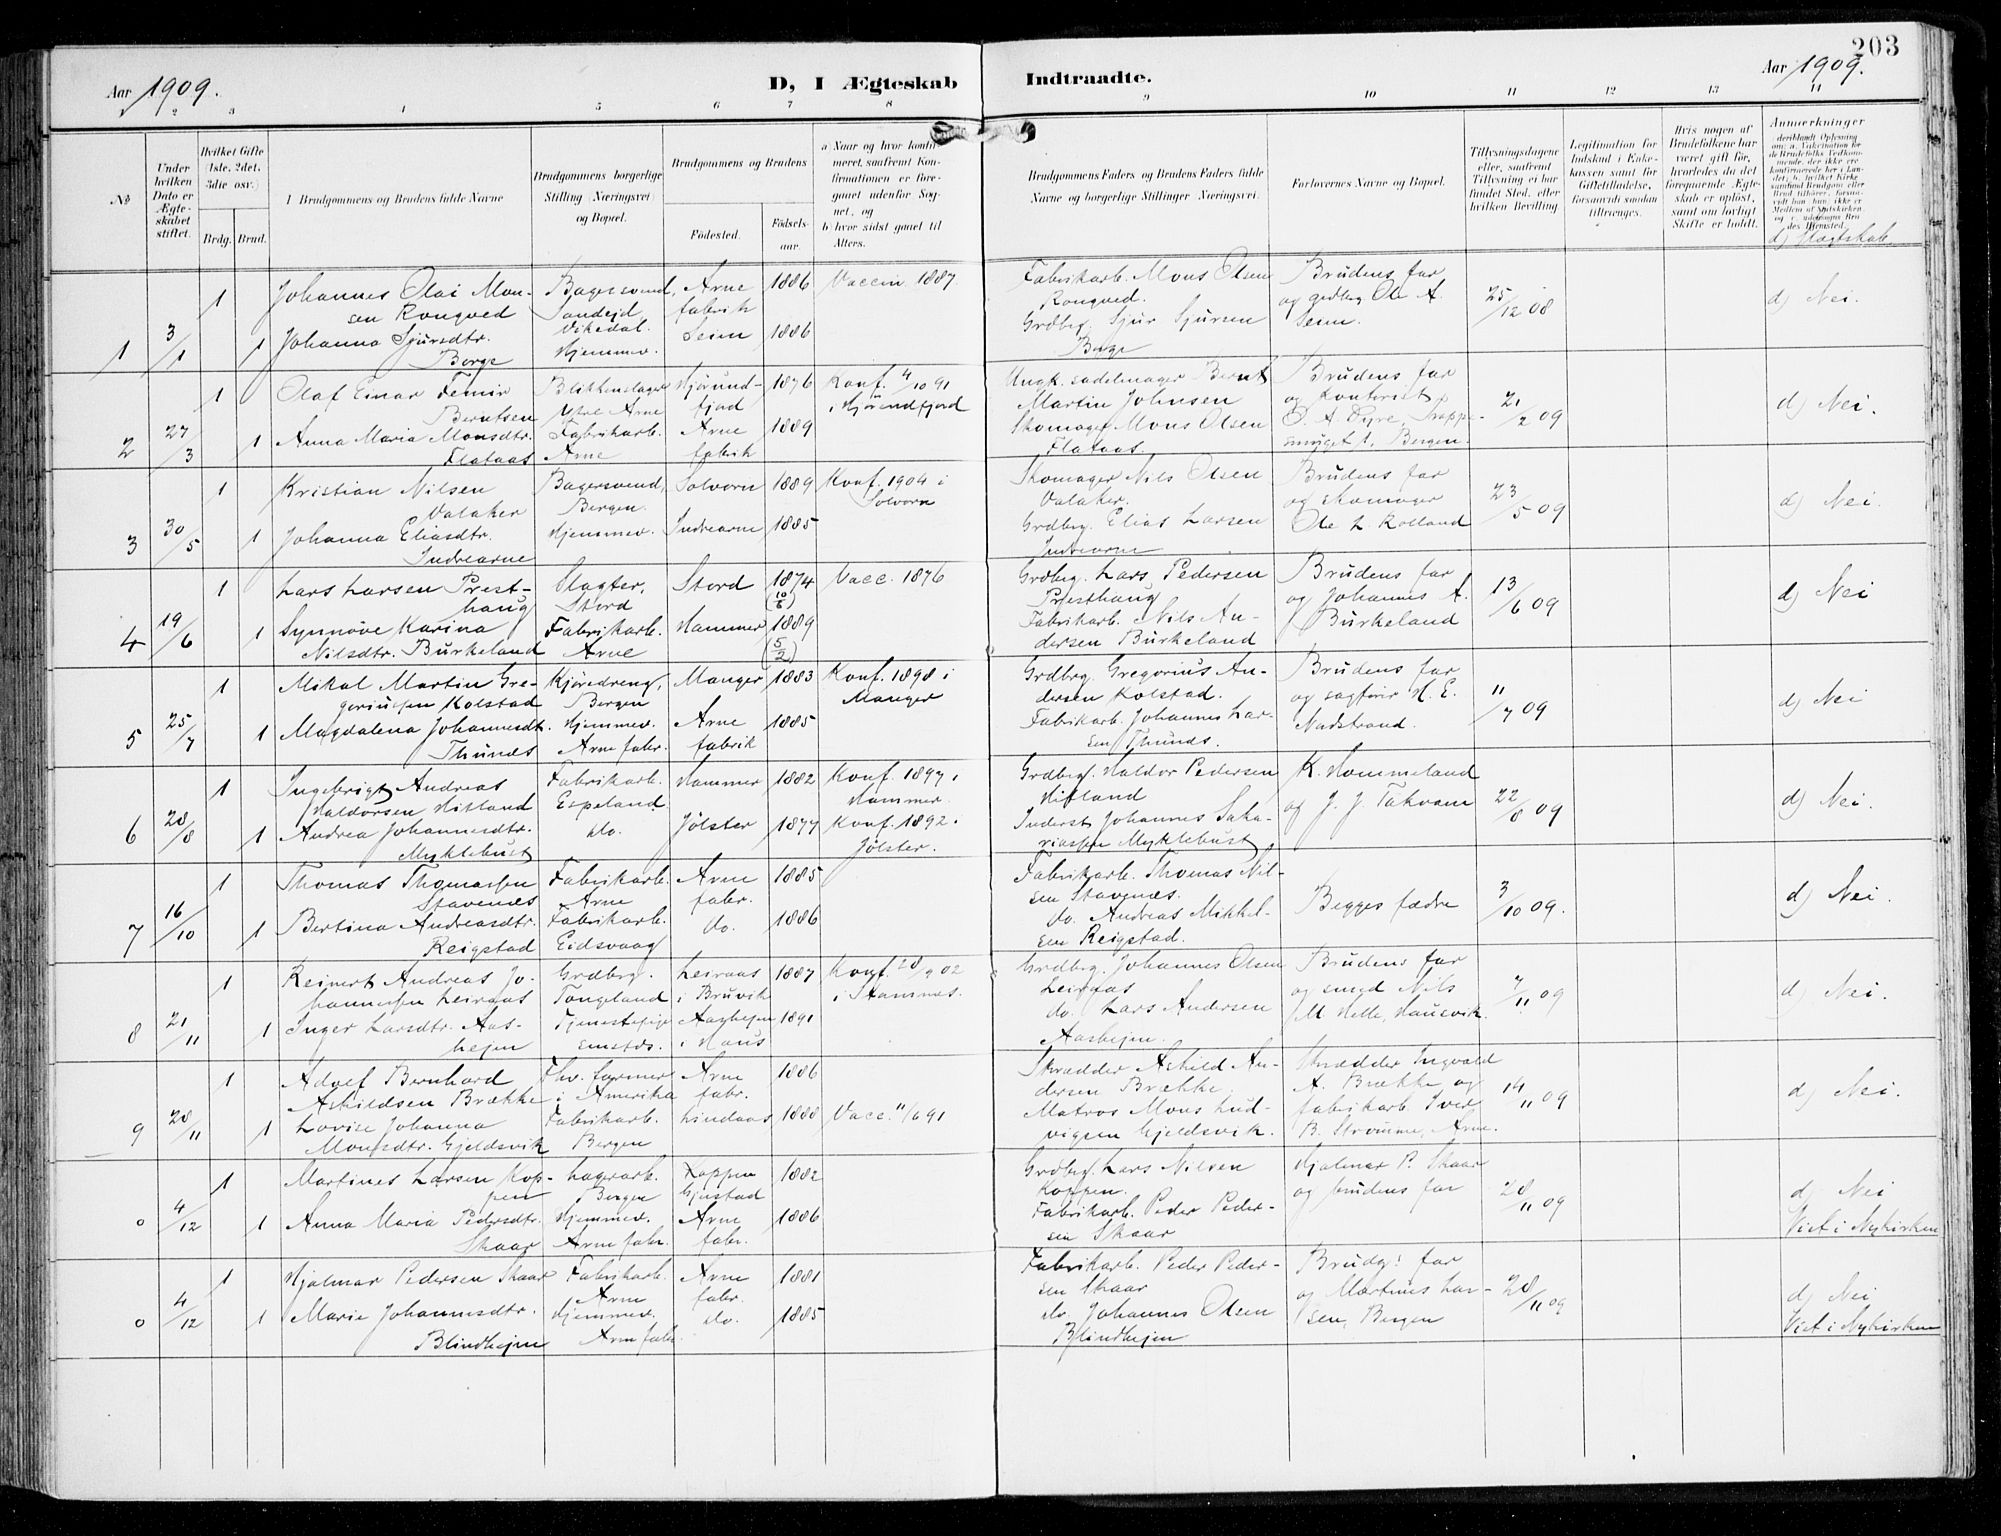 203
Aar 1909.
D, I Ægteskab Indtraadte.
Aar 1909.
2 3 4 5 6 7 8 9 10 11 12 13 14
No
Under hvilken Dato er Ægteskabet stiftet.
Hvilket Gifte (1ste, 2det, 3die osv.)
Brdg. Brud.
Brudgommens og Brudens fulde Navne
Brudgommens borgerlige Stilling Næringsvei og Bopæl.
Brudgommens og Brudens
Fødested.
Fødselsaar.
a Naar og hvor konfirmeret, saafremt Konfirmationen er foregaaet udenfor Sognet, og
b hvor sidst gaaet til Alters.
Brudgommens Faders og Brudens Faders fulde Navne og borgerlige Stillinger Næringsvei.
Forlovernes Navne og Bopæl.
Tillysningsdagene eller, saafremt Tillysning ei har fundet Sted, efter hvilken Bevilling
Legitimation for Indskud i Enkekassen samt for Giftetilladelse, forsaavidt saadan tiltrænges.
Hvis nogen af Brudefolkene har været gift før, hvorledes da det foregaaende Ægteskab er opløst, samt om lovligt Skifte er holdt.
Anmærkninger
d) Slægtskab.
1 3/1 1 1
Johannes Olai Monsen Rongved
Johanna Sjursdtr. Borge
Bagersvend, Sandejd, Vikedal.
Hjemmev.
Arne fabrik 1886
Seim 1886
Vaccin. 1887.
Fabrikarb. Mons Olsen Rongved.
Grdbrg. Sjur Sjursen Borge
Brudens far og grdbrg. Ole A. Seim.
25/12 08
d) Nei.
2 27/3 1 1
Olaf Einar Femir Berntsen
Anna Maria Monsdtr. Flataas
Blikkenslager Ytre Arne
Fabrikarb. Arne
Hjørundfjord 1876
Arne fabrik 1889
Konf. 4/10 91 i Hjørundfjord
Ungk. sadelmager Bernt Martin Johnsen
Skomager Mons Olsen Flataas.
Brudens far og kontorist
smuget 1, Bergen.
21/2 09
d) Nei.
3 30/5 1 1
Kristian Nilsen Valaker
Johanna Eliasdtr. Indrearne
Bagersvend, Bergen.
Hjemmev.
Solvorn 1889
Indrearne 1885
Konf. 1904 i Solvorn
Skomager Nils Olsen Valaker.
Grdbrg. Elias Larsen Indrearne
Brudens far og skomager Ole L Rolland
23/5 09
d) Nei.
4 19/6 1 1
Lars Larsen Presthaug
Synnöve Karina Nilsdtr. Burkeland
Slagter, Stord
Fabrikarb. Arne
Stord 1874 (10/6)
Hammer 1889 (5/2)
Vacc. 1876
Grdbrg. Lars Pedersen Presthaug
Fabrikarb. Nils Andersen Burkeland
Brudens far og Johannes A. Burkeland
13/6 09
d) Nei
5 25/7 1 1
Mikal Martin Gregoriussen Kolstad
Magdalena Johannesdt. Thunæs
Kjøredreng, Bergen
Hjemmev. Arne fabr.
Manger 1883
Arne fabrik 1885
Konf. 1898 i Manger
Grdbrg. Gregorius Andersen Kolstad.
Fabrikarb. Johannes Larsen Thunæs.
Brudens far og sagfører H. E. Nadstrand.
11/7 09
d) Nei
6 28/8 1 1
Ingebrigt Andreas Haldorsen Hitland
Andrea Johannesdtr. Myklebust
Fabrikarb. Espeland
do.
Hammer 1882
Jølster 1877
Konf. 1897 i Hammer
Konf. 1892 i Jølster.
Grdbrg. Haldor Pedersen Hitland
Inderst Johannes Sakariassen Myklebust
K. Hommeland og J. J. Takvam
22/8 09
d) Nei.
7 16/10 1 1
Thomas Thomassen Stavenæs
Bertina Andreasdtr. Reigstad
Fabrikarb. Arne
Fabrikarb. Eidsvaag
Arne fabr. 1885
do. 1886
Fabrikarb. Thomas Nilsen Stavenæs.
do. Andreas Mikkelsen Reigstad.
Begges fædre
3/10 09.
d) Nei.
8 21/11 1 1
Reinert Andreas Johannessen Leiraas
Inger Larsdtr. Aashejm
Grdbrg. Tongeland
Tjenestepige smstds.
Leiraas i Bruvik 1887
Aashejm i Haus 1891
Konf. 28/9 02 i Stamnes.
Grdbrg. Johannes Olsen Leiraas
do. Lars Andersen Aashejm.
Brudens far og smed Nils M Helle, Hausvik.
7/11 09
d) Nei.
9 28/11 1 1
Adolf Bernhard Askildsen Brække
Lovise Johanna Monsdtr. Gjeldsvik
Fhv. farmer i Amerika
Fabrikarb. Bergen
Arne fabr. 1886
Lindaas 1888
Vacc. 11/6 91
Skrædder Askild Andersen Brække.
Matros Mons Ludvigsen Gjeldsvik.
Skrædder Ingvald A. Brække og fabrikarb. Iver B. Strömme, Arne.
14/11 09
d) Nei.
0 4/12 1 1
Martines Larsen Koppen
Anna Maria Pedersdtr. Skaar
Lagerarb. Bergen
Hjemmev. Arne fabr.
Koppen Gjestad 1882
Arne fabr. 1886
Grdbrg. Lars Nilsen Koppen.
Fabrikarb. Peder Pedersen Skaar
Hjalmar P. Skaar og brudens far
28/11 09
d) Nei
Viet i Nykirken
0 4/12 1 1
Hjalmar Pedersen Skaar
Marie Johannesdtr. Blindhejm
Fabrikarb. Arne
Hjemmev. Arne fabr.
Arne fabr. 1881
do. 1885
Fabrikarb. Peder Pedersen Skaar
do. Johannes Olsen Blindhejm
Brudg! far og Martines Larsen, Bergen
28/11 09
d) Nei
Viet i Nykirken